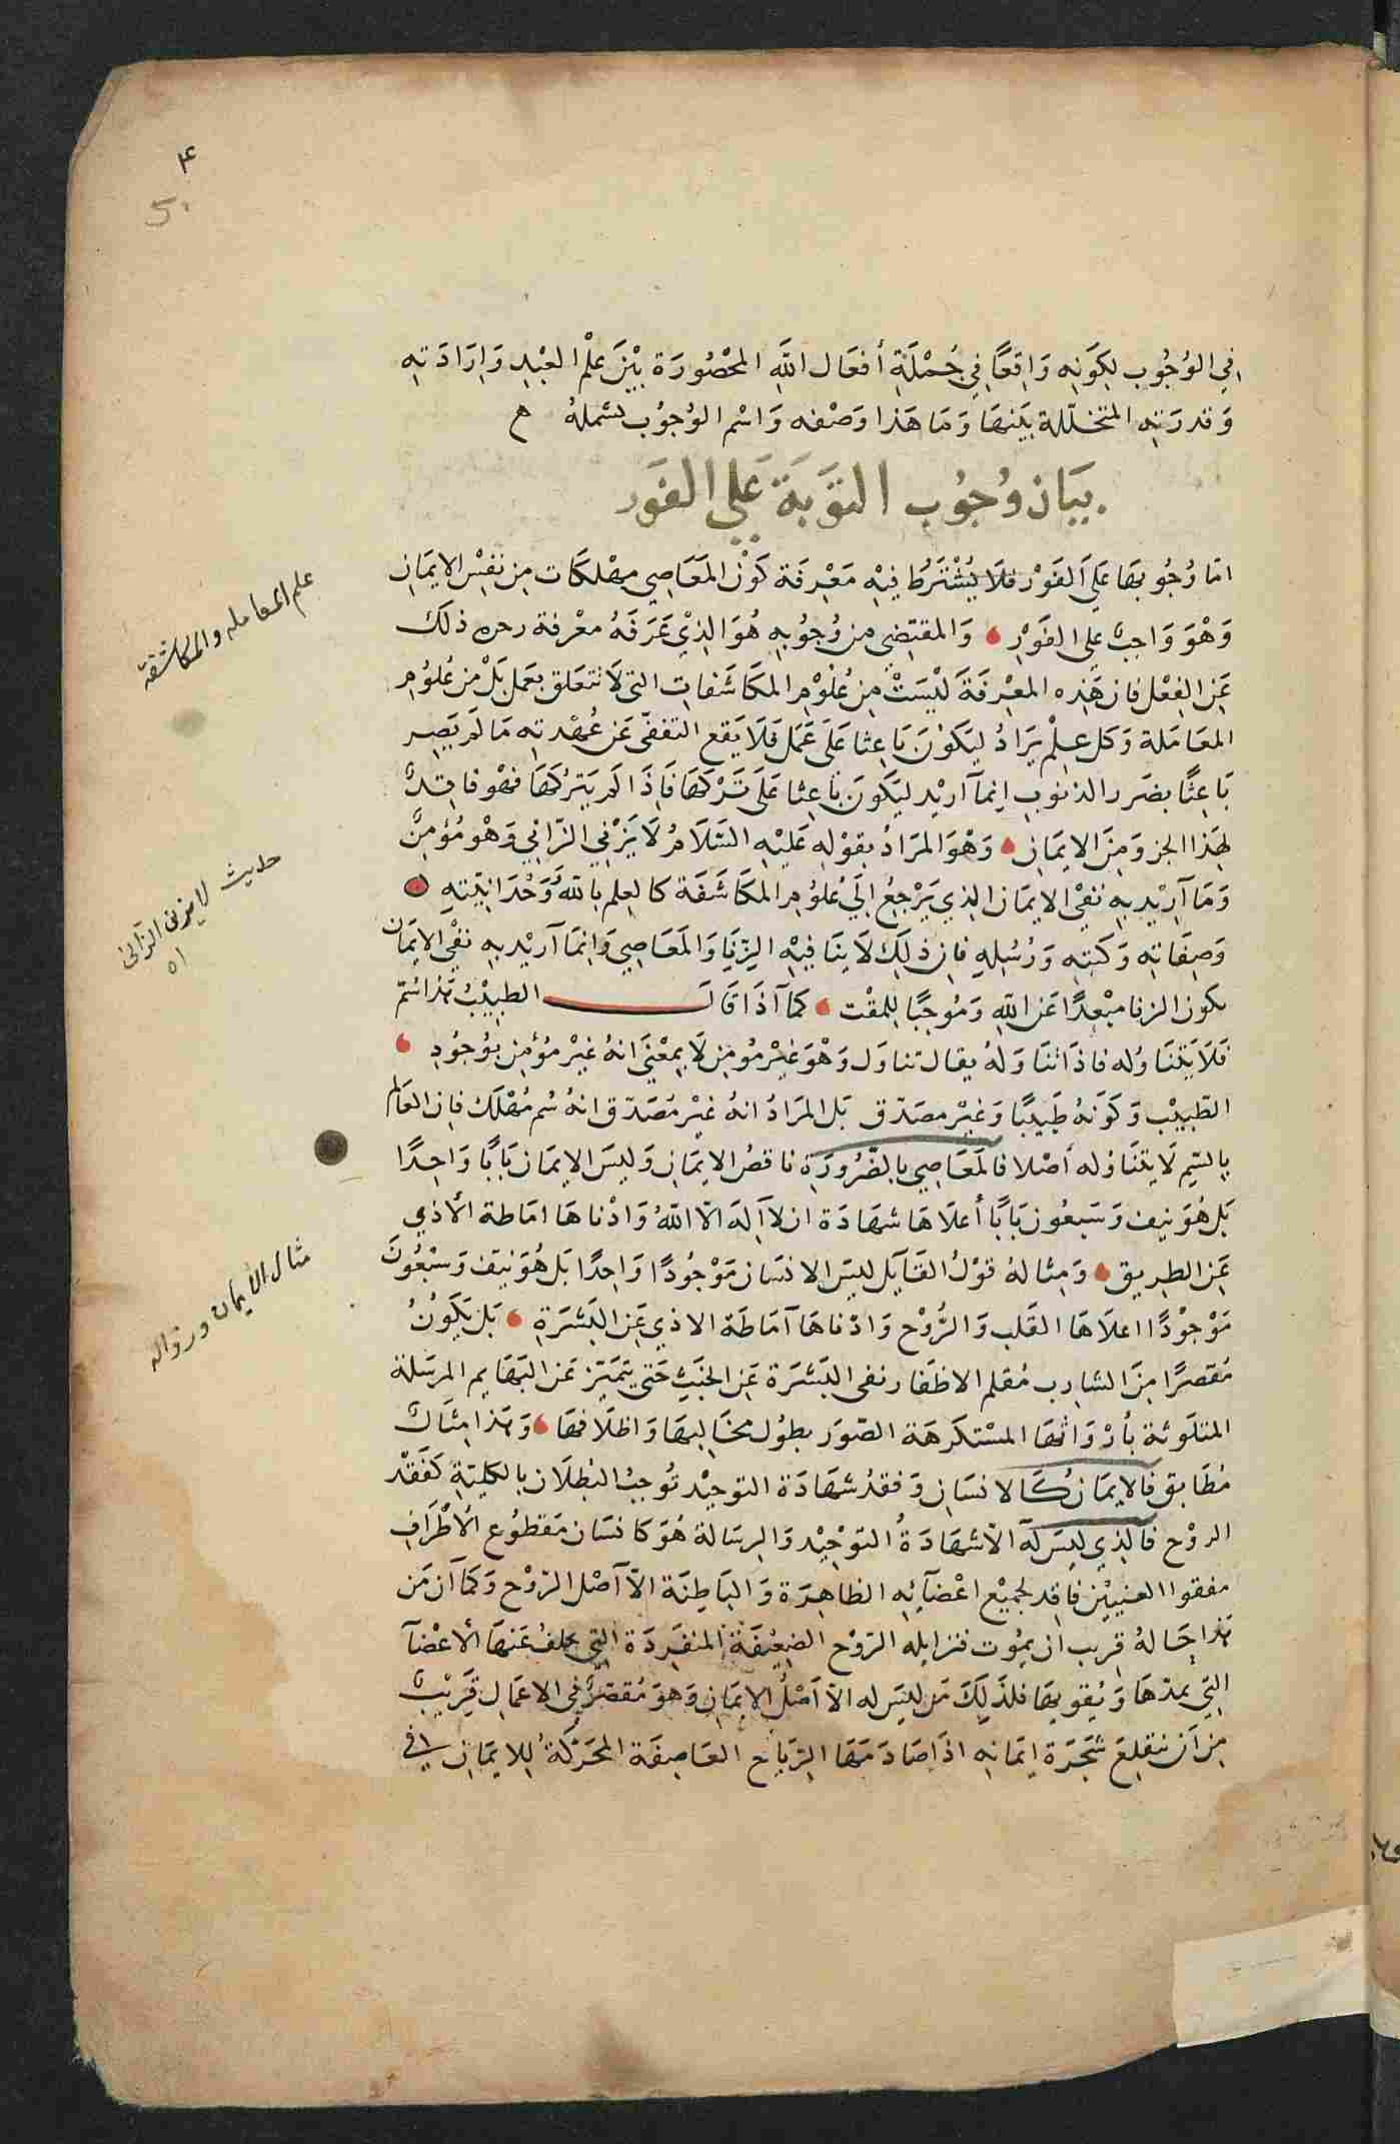 ٤
5.
في الوُجُوب لِكَوْنِه وَاقِعًا فِي جُمْلَةِ أفعَال اللَّهِ المحْصُورَة بَيْنَ عِلْم العَبْدِ وَاِرَادَتِهِ
وَقدرَتِهِ المتخلّلة بَينهَا وَمَا هَذا وَصْفه وَاسْم الوُجُوب يشملهُ
بيَان وُجُوب التوَبَة عَلي الفوَر
امّا وُجُوبهَا عَلَى الفَوْر فلَا يُشْتَرَطُ فيْهِ مَعْرِفَة كَوْن المَعَاصِي مهْلكَات مِن نفسْ الايمَان
وَهْوَ وَاجبٌ عَلى الفَوْر وَالمقتضِي من وُجُوبِهِ هُوَ الذيْ عَرَفَهُ معْرفة ذلكَ
عَن الفِعْل فان هَذِه المعْرفَةَ ليْسَتْ مِنْ عُلوْم المكَاشَفاتِ التي لَا تتعَلق بعَمل بَلْ مِنْ عُلوُم
المعَامَلة وَكل عِلْم يرَادُ ليَكوْنَ بَاعِثا عَلَى عَمَل فلَا يَقع التفصّي عَن عُهْدتِه مَا لم يَصِر
بَاعِثًا بضَرر الذنوب اِنمآ اريْد ليَكونَ بَاعِثا عَلَى تَرْكهَا فَاِذَا لم يَترُكهَا فهْو فاقِدٌ
لِهَذا الجزو مِنَ الايمَان وَهْوَ المرَادُ بقوْلِه عَليْهِ السَّلَامُ لَا يَزْني الزّاني وَهْو مُؤمِنٌ
وَمَا آريْد بِهِ نفيْ الايمَان الذِي يَرْجِعُ اِلَى عُلوُم المكَاشَفَة كالعِلم باللهِ وَوَحْدَانيّتِهِ
وَصِفَاتِهِ وَكتبِه وَرُسُلِهِ فان ذلِكَ لَا ينَافيْهِ الزِّنَا وَالمَعَاصِي وَانمَا آريْد بِهِ نفْي الايمَان
بكون الزنا مبْعِدًا عَن اللّهِ وَمُوجِبًا للمقْت كمآ اذَا قالَ الطبيْبُ هَذا سُمّ
فلَا يَتنَاوُله فاذَا تنَاوَلهُ يقال تناوَل وَهْوَ غيْر مُومِن لَا بِمعْنَى انهُ غيْر مُؤمِن بوُجُودِ
الطّبيْب وَكوَنهُ طَبيْبًا وَغيْر مصَدّق بَل المرَادُ انهُ غيْر مُصَدّق انهُ سُم مُهْلك فان العَالم
بالسّم لَا يتنَاوَله أصْلا فالمعَاصِي بالضّرُورَة ناقصُ الايمَان وَليسَ الايمَان بَابًا وَاحِدًا
بَل هُوَ نيف وَسَبعُون بَابًا أعلَاهَا شهَادَة ان لآاِلَه الّا اللهُ وَادْناهَا امَاطة الأذي
عَن الطرِيق وَمِثالهُ قوْلُ القَآيل ليسَ الانسَان مَوْجُودًا وَاحِدًا بَل هُوَ نيَف وَسَبْعُونَ
مَوْجوْدًا اعلَاهَا القَلب وَالرُّوْح وَادْناهَا آمَاطَة الاذي عَن البَشَرَةِ بَل يَكوُنُ
مُقصّرًا مِنَ الشارِب مُقلم الاظفَار نقى البَشرَة عَن الخبَثِ حَتى يتَمَيّز عَن البَهَايم المرسَلة
المتلوّثة بأرْوَاثهَا المسْتكرَهَة الصّوَر بطُول مخَالِبهَا وَاظلَافهَا وَهَذا مثَالٌ
مُطَابق فَالايمَان كَالانسَان وَفقدُ شهَادَة التوحِيْد تُوجِبُ البُطلَان بالكليّةِ كَفَقْد
الروْح فالّذِي ليسَ لَه الّا شهَادَةُ التوْحِيْد وَالرِسَالة هُوَ كانسَان مَقطوُع الأَطْرَافِ
مفقوا العينيْن فاقِد لجميْع اعْضَآئِه الظاهِرَة وَالبَاطِنَة الاّ آصْل الرّوْح وَكمَآ ان مَن
هَذا حَالهُ قرِيب ان يموُت فتزايله الروْح الضعِيْفَة المنفَردَة التي يخلف عَنهَا الأعْضَآ
التِي تمدّهَا وَتُقوّيهَا فلذَلِكَ مَن ليَسَ له الاّ اصْلُ الايمَان وَهوَ مُقصّرٌ في الاعمَالِ قَرِيْبٌ
مِن اَن تنقلِعَ شجَرَة ايمَانِه اذَا صَادَمَهَا الرِّيَاحِ العَاصِفَة المحَرّكَة لِلايمَان في
علم المعامله والمكاشفة
حديث لا يزنى الزّانى
٥١
مثال الايمان وزواله